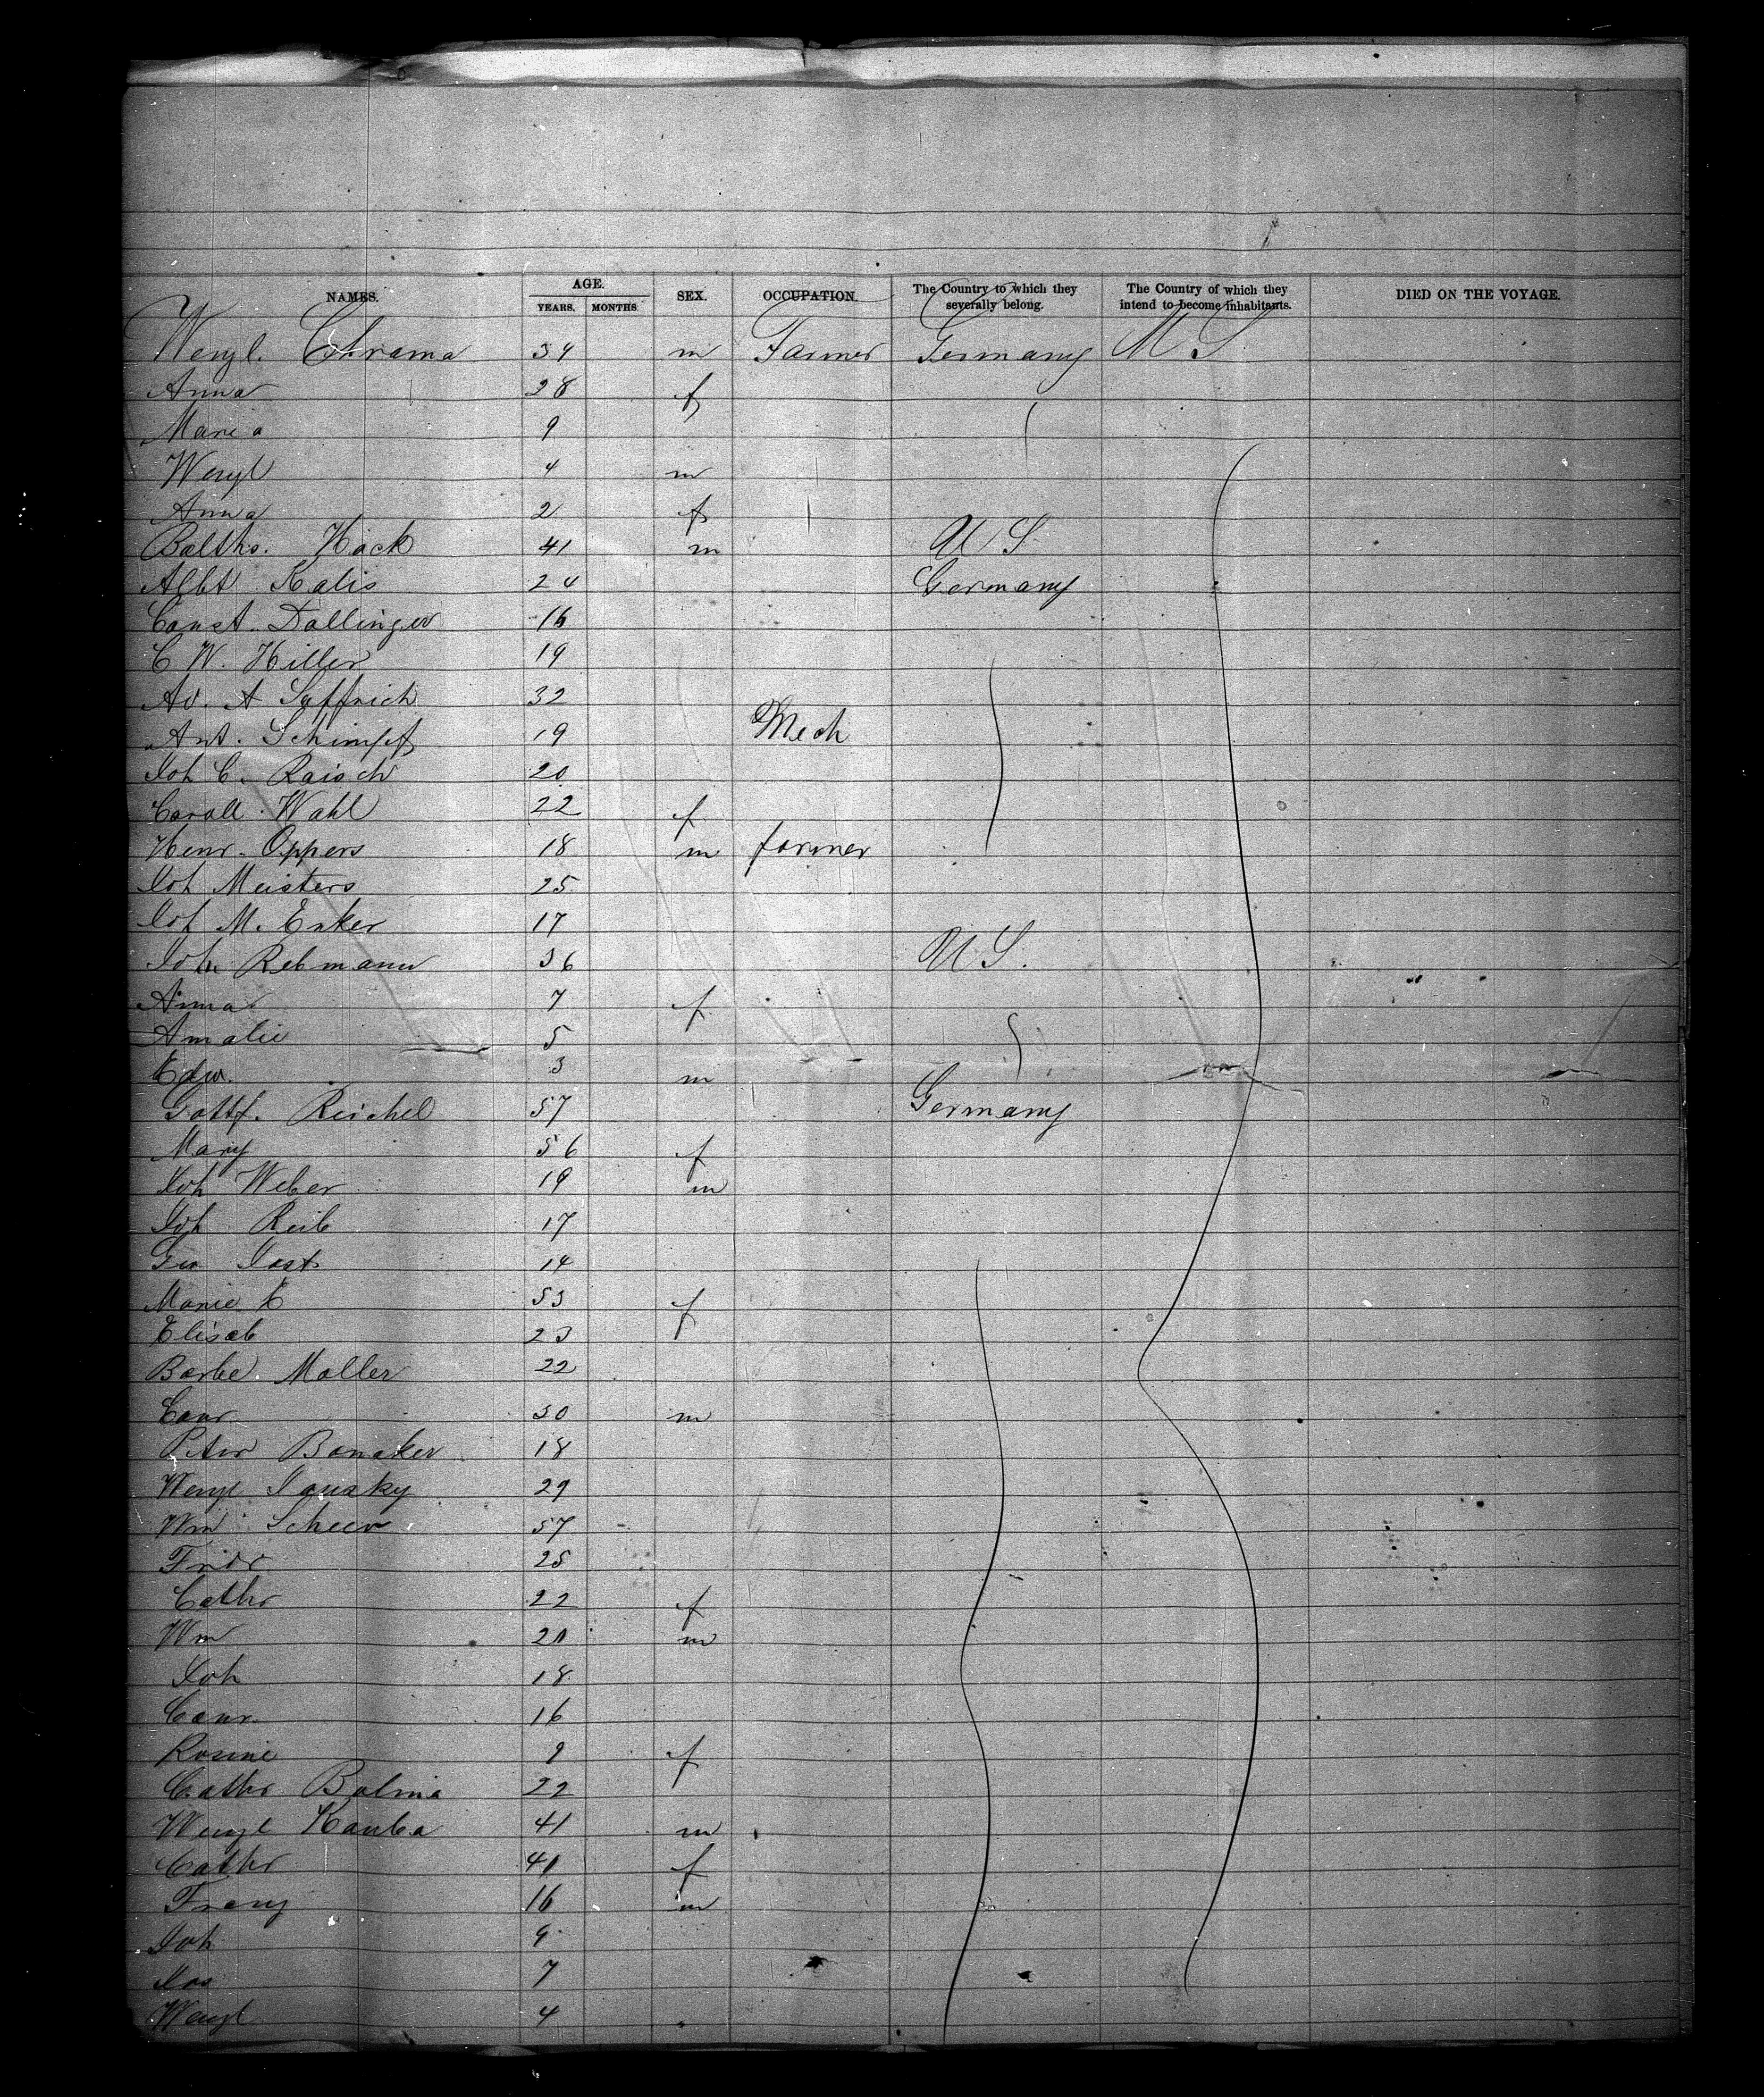 NAMES. AGE. YEARS. MONTHS SEX. OCCUPATION. The Country to which they severally belong. The Country of which they intend to become inhabitants. DIED ON THE VOYAGE.
Wenzl. Chrama 34 m Farmer Germany U S
Anna 28 f
Maria 9
Wenzl 4 m
Anna 2 f
Balths. Hack 41 m U S
Albt Kalis 24 Germany
Const. Dollinger 16
C W. Hiller 19
Ad. A Saffrich 32
Ant. Schimpf 19 Mech
Joh C. Raisch 20
Caroll. Wahl 22 f
Henr. Oppers 18 m farmer
Joh Meisters 25
Joh M. Enker 17
Joh Rebmann 36 U S.
Anna 7 f
Amalie 5
Edw. 3 m
Gottf. Reichel 57 Germany
Mary 56 f
Joh Weber 19 m
Joh Reib 17
Geo Jost 14
Marie E 53 f
Elisab 23
Barbe. Moller 22
Conr. 30 m
Peter Bonaker 18
Wenzl Jansky 29
Wm Scheer 57
Fridr 25
Cathr 22 f
Wm 20 m
Joh 18
Conr. 16
Rosine 9 f
Cathr Bolina 22
Wenzl Kauba 41 m
Cathr 40 f
Franz 16 m
Joh 9
Jos 7
Wenzl 4